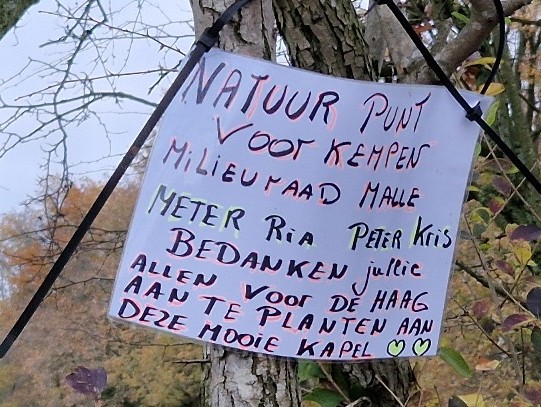 NATUUR PUNT
VOOR KEMPEN
MiLiEURAAD MALLE
METER Ria PETER Kris
BEDANKEN jullie
ALLEN VOOR DE HAAG
AAN TE PLANTEN AAN
DEZE MOOIE KAPEL